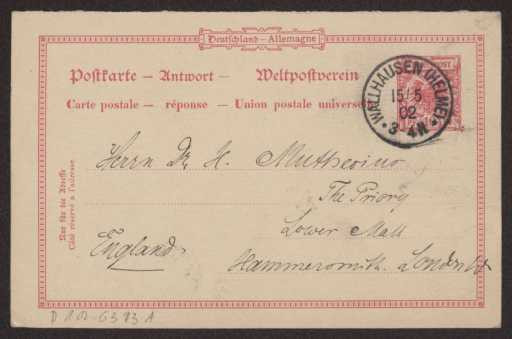 Deutschland - Allemagne
Postkarte — Antwort — Weltpostverein
Carte postale — réponse — Union postale universelle
WALLHAUSEN (HELME)
15/5
02
3-4N
POST
Nur für die Adresse
Côté réservé à l'adresse
Herrn Dr. H. Muthesius
The Priory
Lower Mall
England
Hammersmith. London